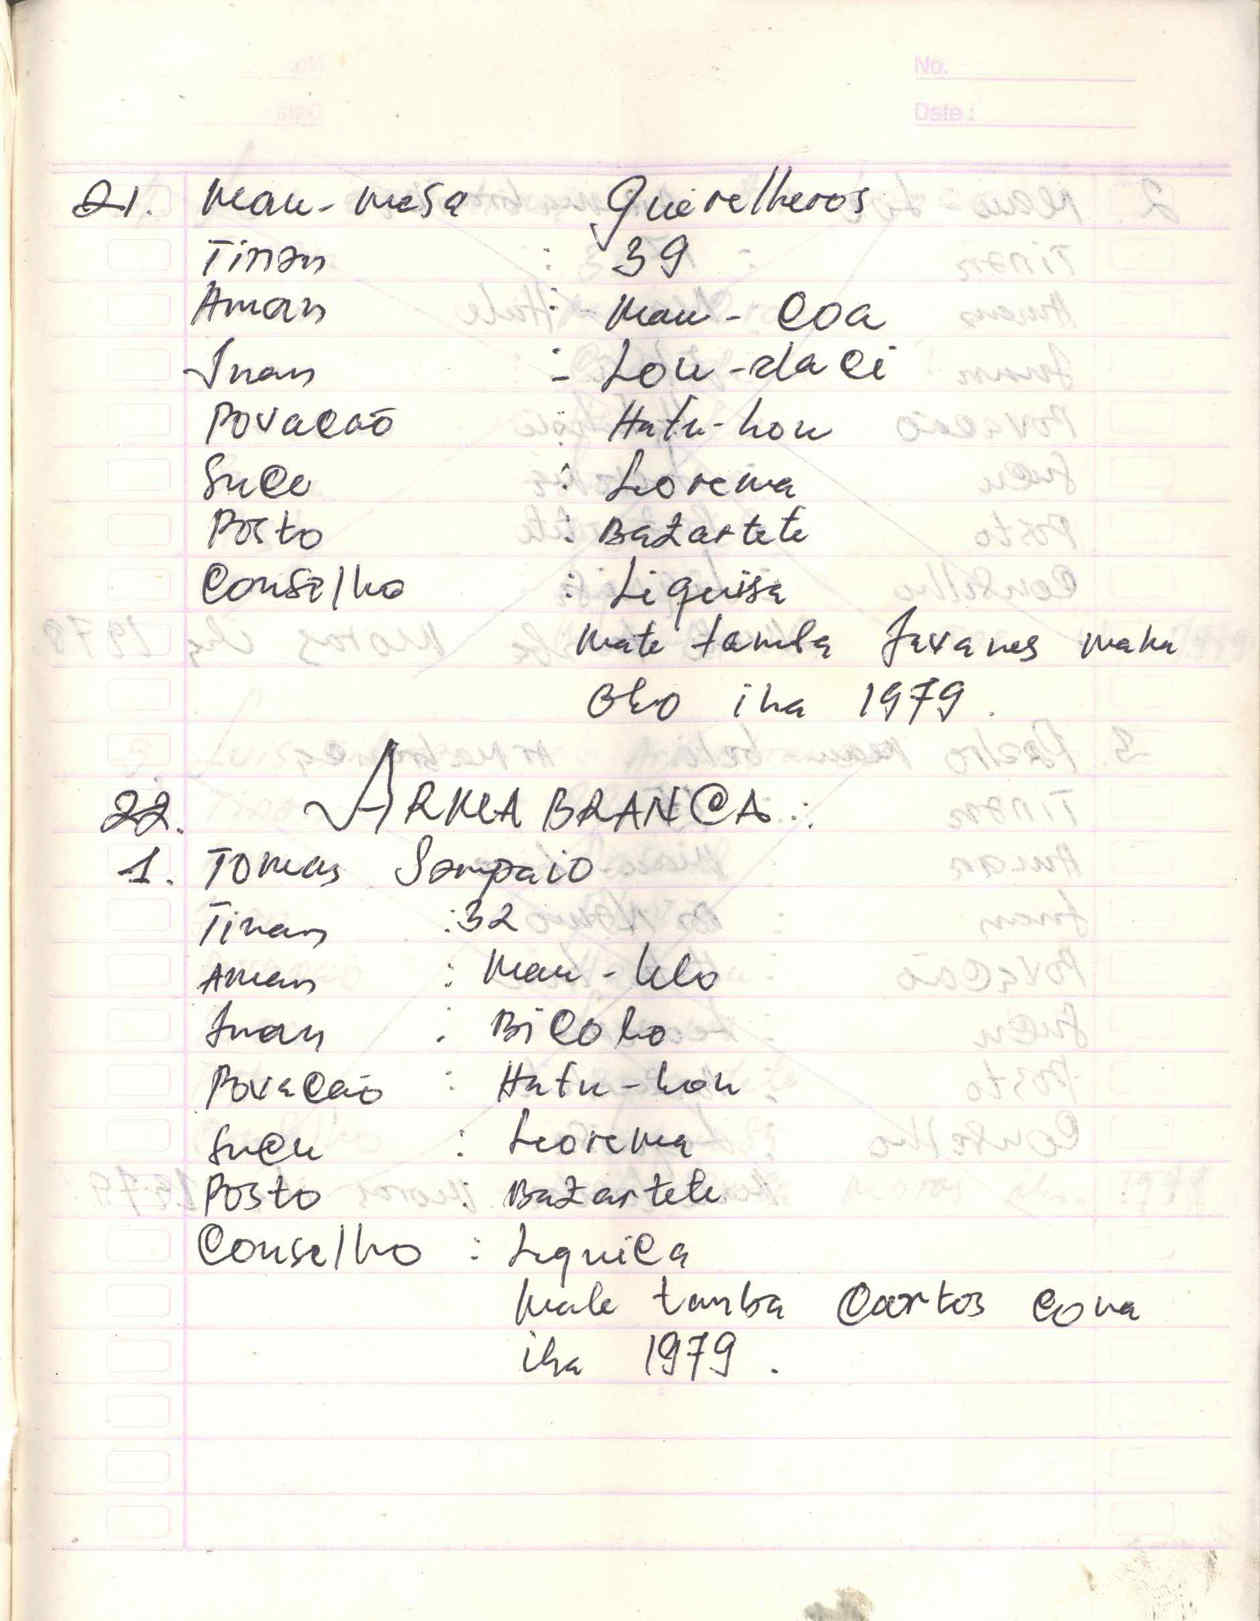 No.
Date:
21. Mau-mesa Querelheros
Tinan : 39
Aman : Mau-Coa
Inan : Lou-daci
Povacão : Hatu-hou
Suco : Leorema
Posto : Bazartete
Conselho : Liquisa
Mate tamba Javanes maka
Oho iha 1979.
22. ARMA BRANCA:
1. Tomas Sampaio
Tinan : 32
Aman : Mau-klo
Inan : Bicoho
Povacão : Hatu-hou
Sucu : Leorema
Posto : Bazartete
Conselho : Liquica
Mate tamba Cartos cona
iha 1979.